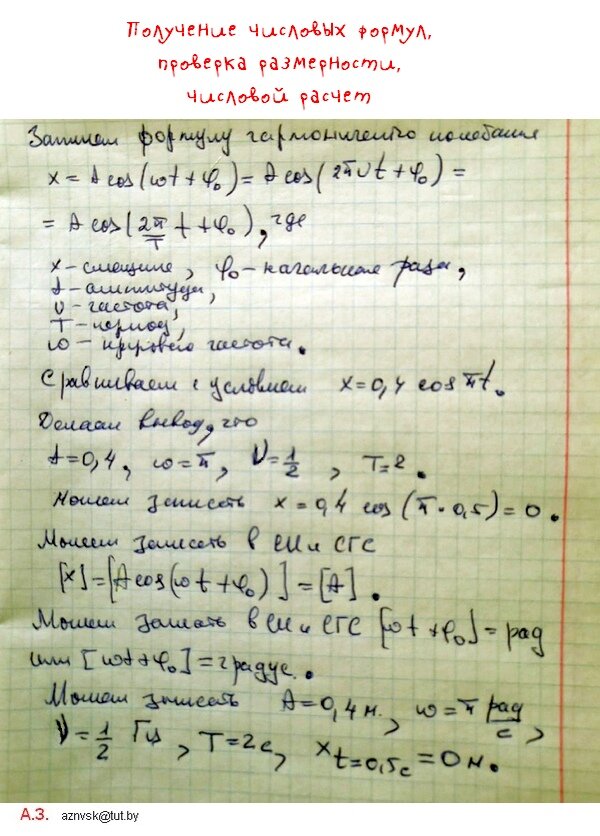 Получение числовых формул,
проверка размерности,
числовой расчет
Запишем формулу гармонического колебания
x = A cos(ωt + φ₀) = A cos(2πνt + φ₀) =
= A cos(2π/T t + φ₀), где
x – смещение, φ₀ – начальная фаза,
A – амплитуда,
ν – частота,
T – период,
ω – круговая частота.
Сравниваем с условием x = 0,4 cos πt.
Делаем вывод, что
A = 0,4, ω = π, ν = 1/2, T = 2.
Можем записать x = 0,4 cos(π·0,5) = 0.
Можем записать в СИ и СГС
[x] = [A cos(ωt + φ₀)] = [A].
Можем записать в СИ и СГС [ωt + φ₀] = рад
или [ωt + φ₀] = градус.
Можем записать A = 0,4 м, ω = π рад/с,
ν = 1/2 Гц, T = 2 с, x t=0,5с = 0 м.
А.З. aznvsk@tut.by